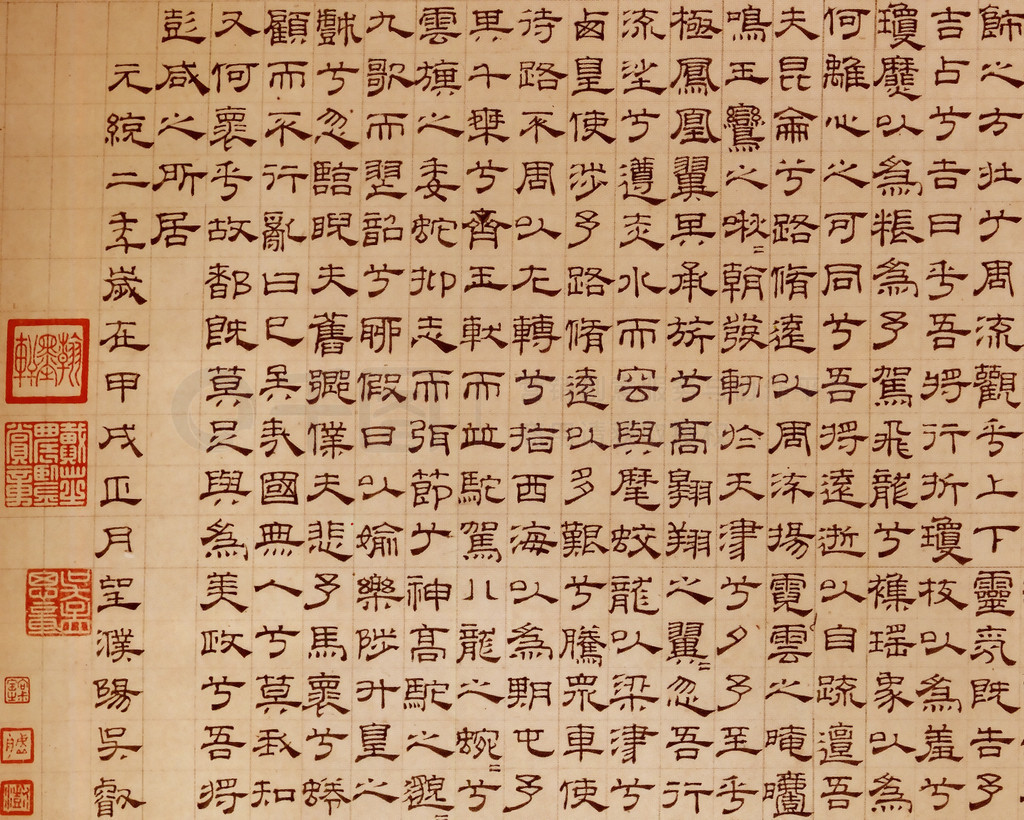 飾之方壯兮周流觀乎上下靈氛既告予
吉占兮吉日乎吾將行折瓊枝以為羞兮
瓊靡以為粻為予駕飛龍兮襍瑤象以為
何離心之可同兮吾將遠逝以自疏邅吾
夫昆侖兮路脩遠以周流揚霓雲之晻
鳴玉鸞之啾〻朝發軔於天津兮夕予至乎
極鳳凰翼其承旂兮高翱翔之翼〻忽吾行
流沙兮遵赤水而容與麾蛟龍以梁津兮
卤皇使涉予路脩遠以多艱兮騰眾車使
待路不周以左轉兮指西海以為期屯予
其千乘兮齊玉軑而並馳駕八龍之蜿〻兮
雲旗之委蛇抑志而弭節兮神高馳之邈〻
九歌而舞韶兮聊假日以媮樂陟升皇之
兮忽臨睨夫舊鄉僕夫悲予馬懷兮蜷
顧而不行亂曰已矣哉國無人兮莫我知
又何懷乎故都既莫足與為美政兮吾將
彭咸之所居
元統二年歲在甲戌正月望濮陽吳叡
翰墨軒